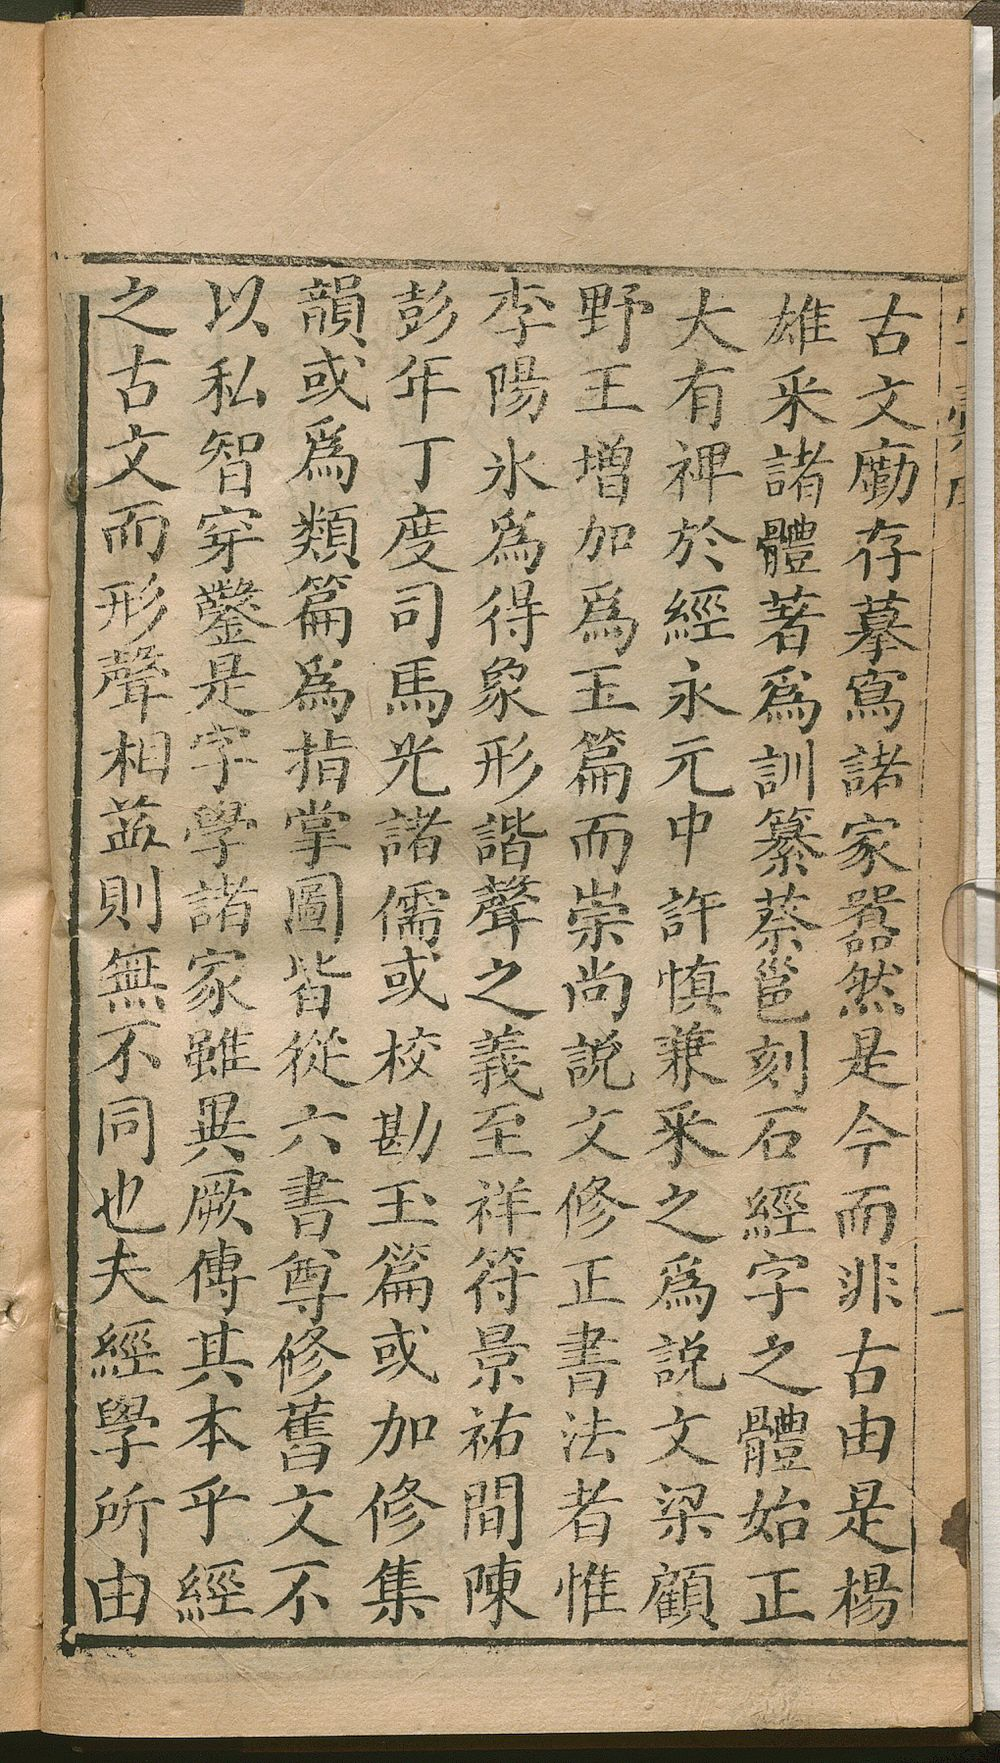 古文勵存摹寫諸家嚣然是今而非古由是楊
雄釆諸體著爲訓纂蔡邕刻石經字之體始正
大有裨於經永元中許慎兼釆之爲説文梁顧
野王增加爲玉篇而崇尚説文修正書法者惟
李陽氷爲得象形諧聲之義至祥符景祐間陳
彭年丁度司馬光諸儒或校勘玉篇或加修集
韻或爲類篇爲指掌圖皆從六書尊修舊文不
以私智穿鑿是字學諸家雖異厥傳其本乎經
之古文而形聲相益則無不同也夫經學所由